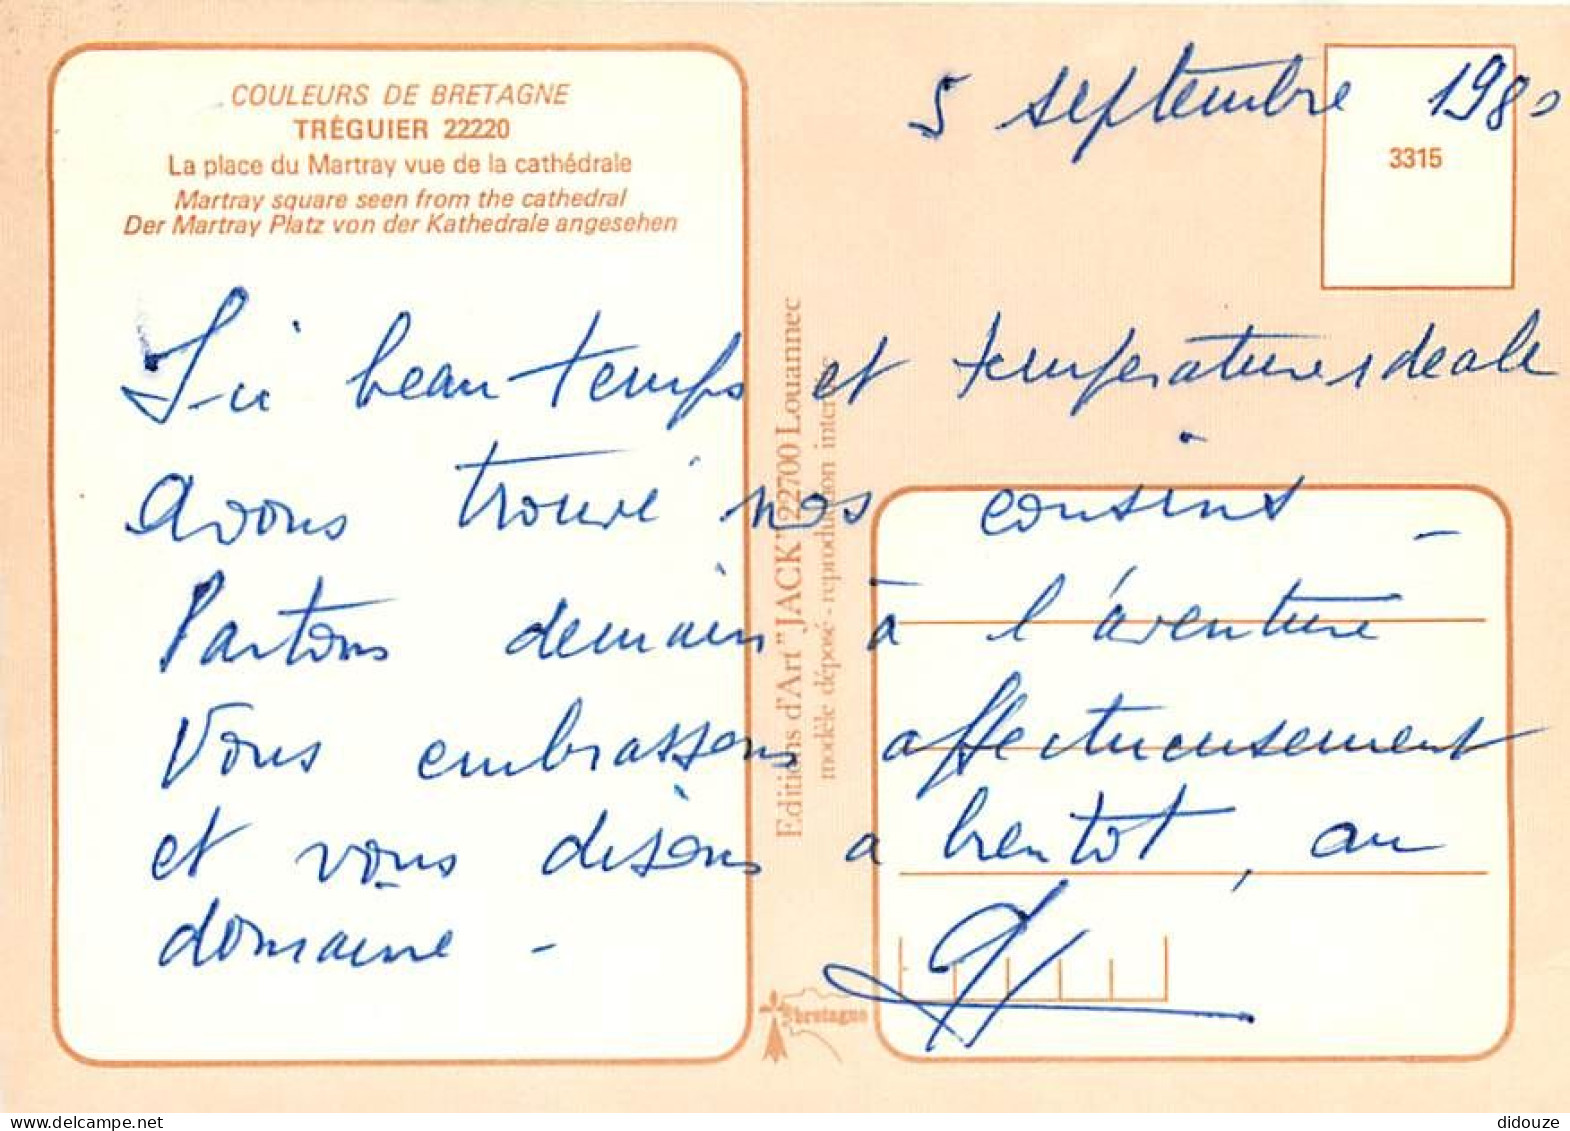 COULEURS DE BRETAGNE
TRÉGUIER 22220
La place du Martray vue de la cathédrale
Martray square seen from the cathedral
Der Martray Platz von der Kathedrale angesehen
5 septembre 1980
3315
Ici beau temps et temperature ideale
avons trouvé nos cousins -
Partons demain à l'aventure
Vous embrassons affectueusement
et vous disons a bientot, au
domaine -
Editions d'Art "JACK" 22700 Louannec
modèle déposé - reproduction interdite
bretagne
didouze